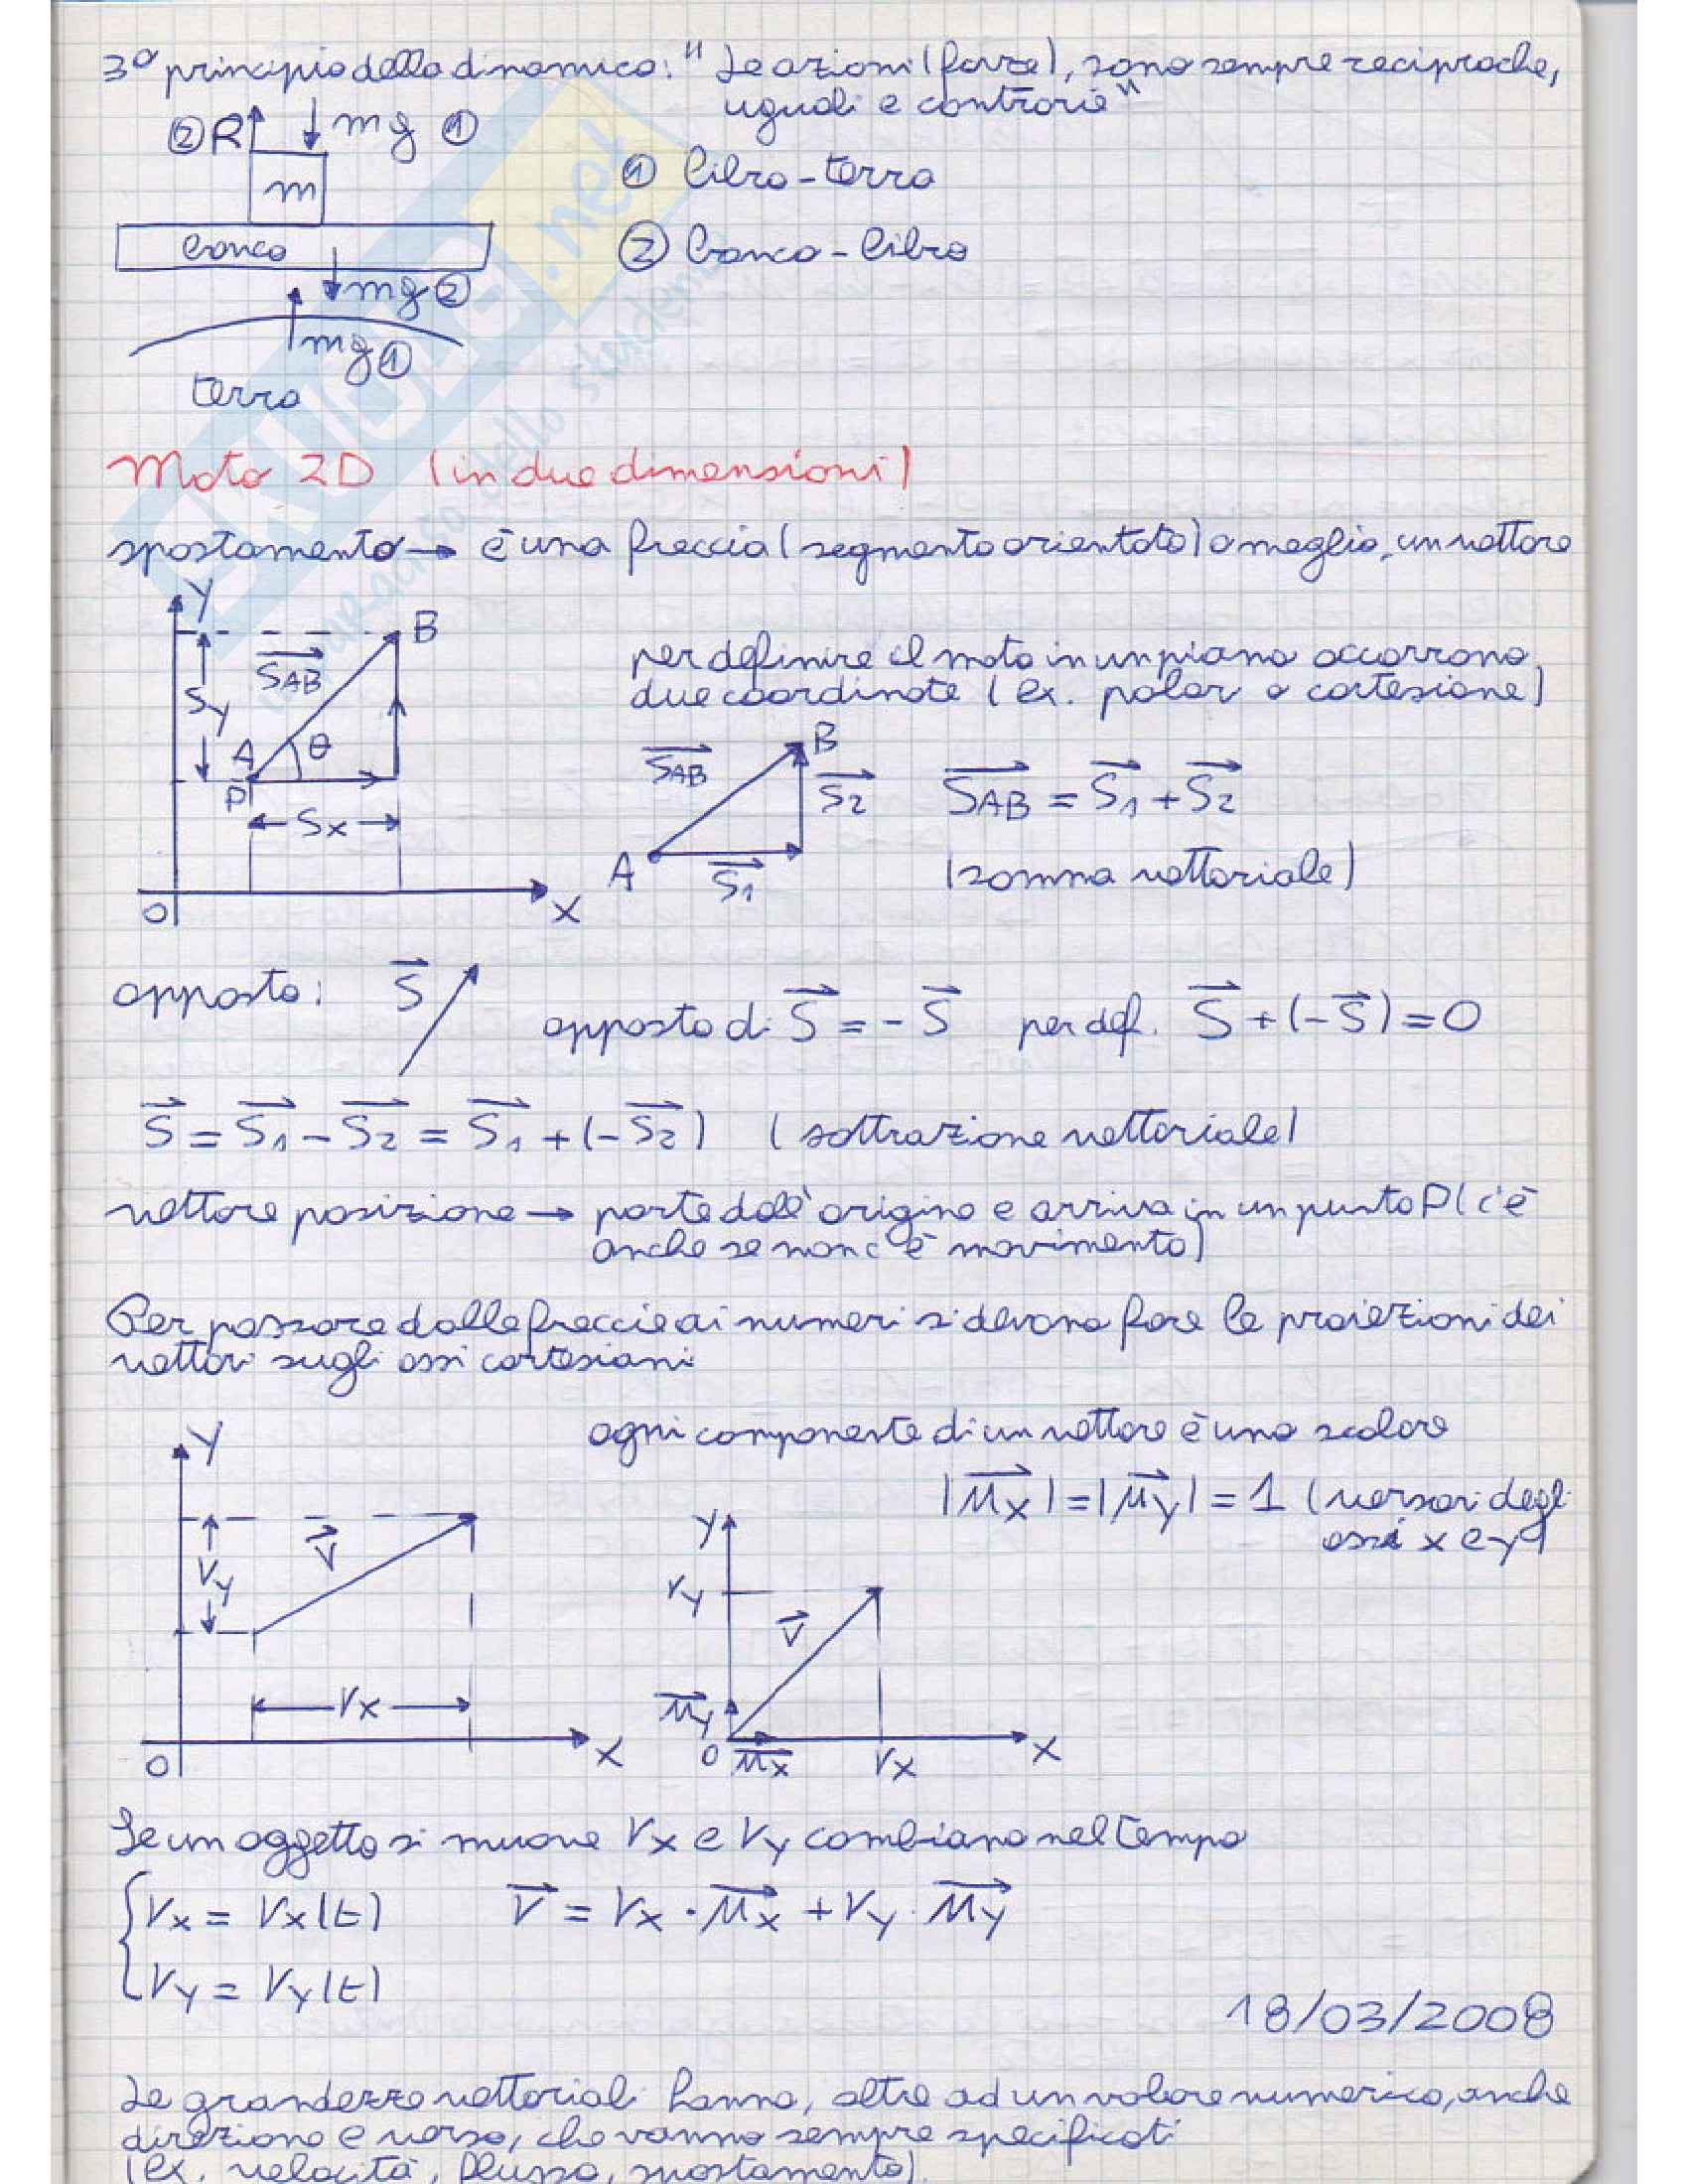 3° principio della dinamica: "Le azioni (forze), sono sempre reciproche,
uguali e contrarie"
② R mg ①
① libro-terra
m
banco
② banco-libro
mg ②
mg ①
terra
Moto 2D (in due dimensioni)
spostamento → è una freccia (segmento orientato) o meglio, un vettore
Y
B
SAB
per definire il moto in un piano occorrono
due coordinate (ex. polar o cartesiane)
Sy
A θ
P
Sx
O
X
SAB
B
S2
A
S1
SAB = S1 + S2
(somma vettoriale)
opposto: S
opposto di S = - S per def. S + (-S) = 0
S = S1 - S2 = S1 + (-S2) (sottrazione vettoriale)
vettore posizione → parte dall'origine e arriva in un punto P (c'è
anche se non c'è movimento)
Per passare dalle freccie ai numeri si devono fare le proiezioni dei
vettori sugli assi cartesiani
ogni componente di un vettore è uno scalare
|μx| = |μy| = 1 (versori degli
assi x e y)
Y
V
Vy
Vx
O
X
Y
Vy
V
μy
O μx Vx X
Se un oggetto si muove Vx e Vy cambiano nel tempo
Vx = Vx(t) V = Vx · μx + Vy · μy
Vy = Vy(t)
18/03/2008
Le grandezze vettoriali hanno, oltre ad un valore numerico, anche
direzione e verso, che vanno sempre specificati
(ex. velocità, flusso, spostamento).
SKUOLA.net
dello studente